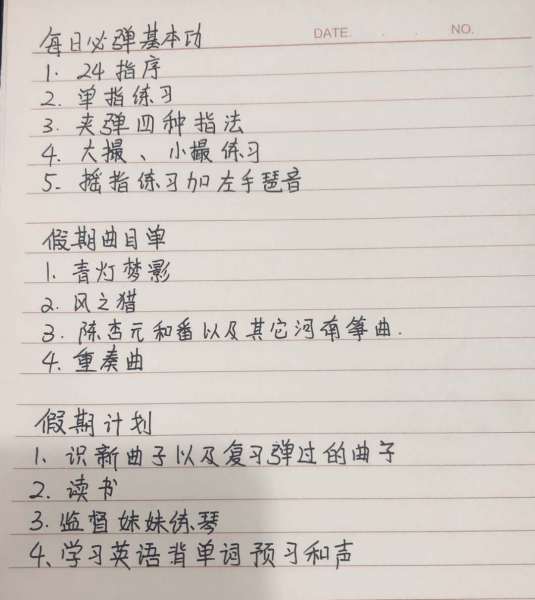 DATE. . . NO.
每日必弹基本功
1. 24指序
2. 单指练习
3. 夹弹四种指法
4. 大撮、小撮练习
5. 摇指练习加左手琶音
假期曲目单
1. 青灯梦影
2. 风之猎
3. 陈杏元和番以及其它河南筝曲.
4. 重奏曲
假期计划
1、识新曲子以及复习弹过的曲子
2. 读书
3. 监督妹妹练琴
4、学习英语背单词预习和声